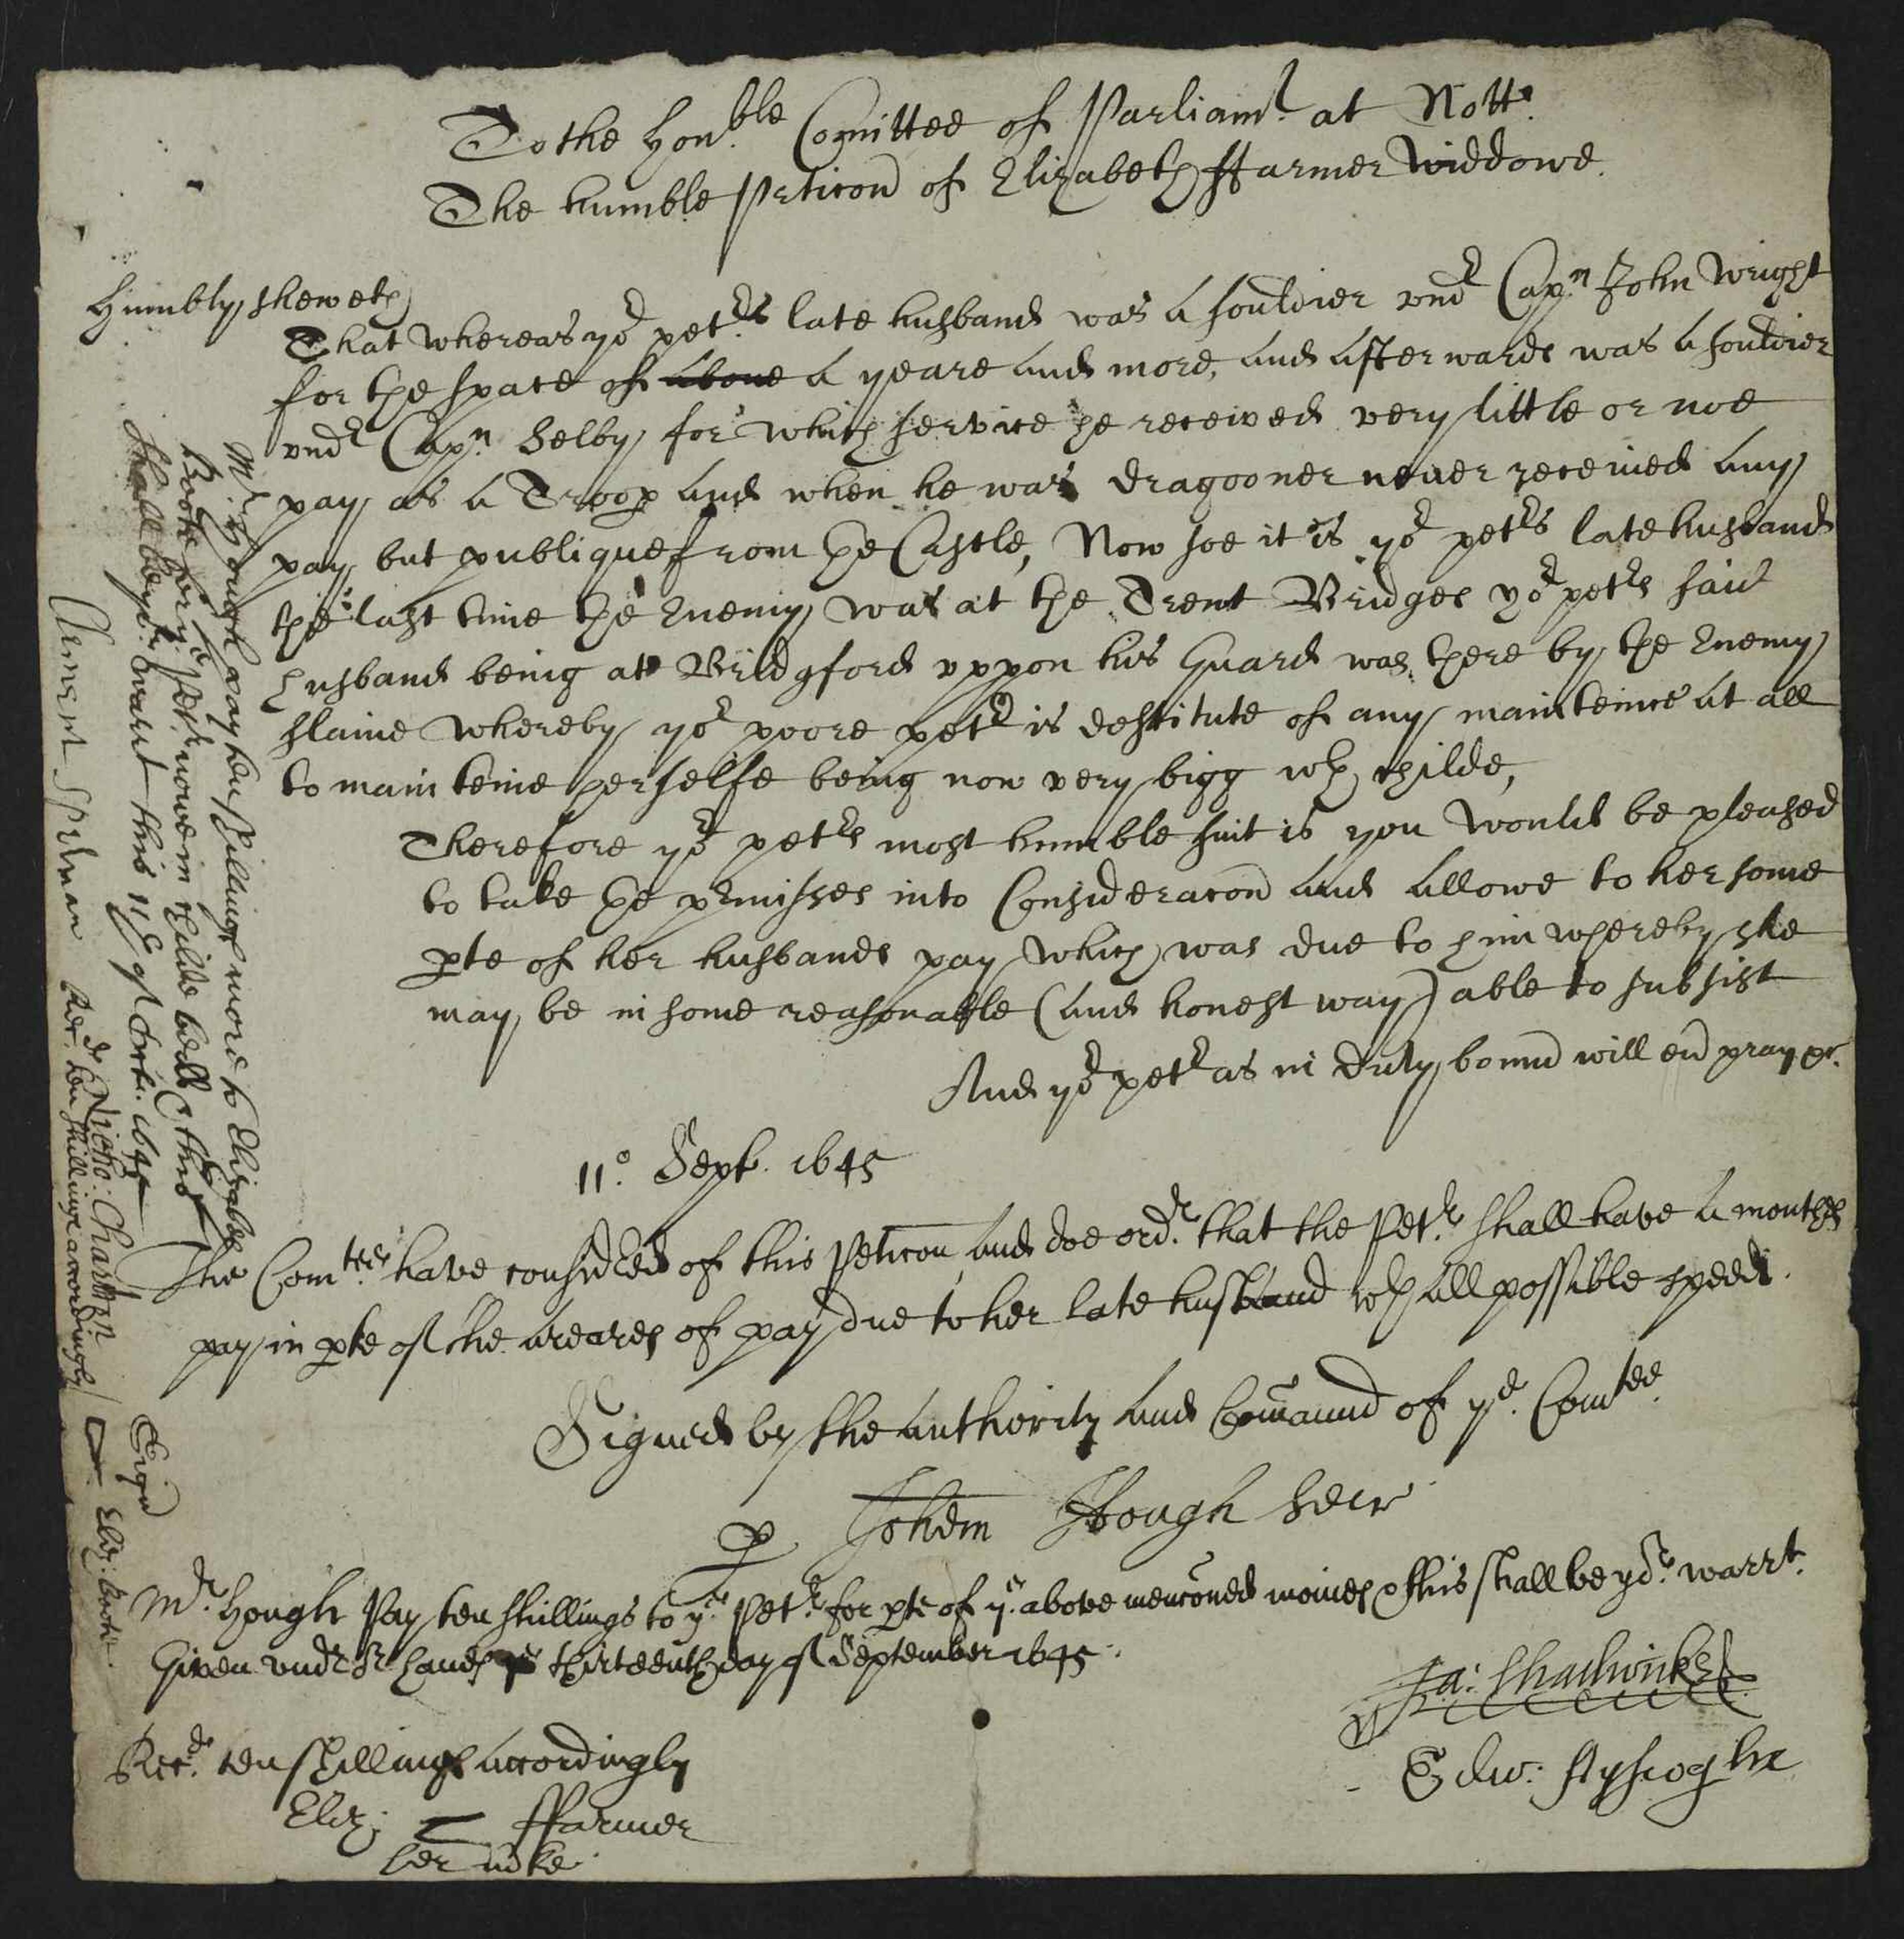 To the Hon:ble Comittee of Parliamt. at Nott:
The humble Peticon of Elizabeth ffarmer Widdowe.
Humbly sheweth
That whereas yor petrs late husband was a souldier vndr Capn John Wright
for the space of above a yeare and more, and afterwards was a souldier
vndr Capn Selby, for which service he received very little or noe
pay as a Troop and when he was dragooner never received any
pay but publique from the Castle, Now soe it is yor petrs late husband
the last time the Enemy was at the Trent Bridges yor petrs said
husband being att Bridgford vppon his Guard was there by the Enemy
slaine whereby yor poore petr is destitute of any mainteince at all
to mainteine herselfe being now very bigg wth childe,
Therefore yor petrs most humble suit is you would be pleased
to take the prmisses into Consideracon and allowe to her some
pte of her husbands pay which was due to him whereby she
may be in some reasonable (and honest way) able to subsist
And yor petr as in duty bound will ever pray &c.
11o Sept. 1645
The Comtee have considered of this Peticon and doe ordr. that the Petr. shall have a months
pay in pte of the areares of pay due to her late husband wth all possible speed.
Signed by the authority and Comaund of ye. Comtee.
p Johem Hough Secr
Mr. Hough Pay ten shillings to ye. Petr. for pte of ye. above menconed monies & this shall be yor. warrt.
Given vndr or. hands ye thirteenth day of September 1645.
Ja: Chadwicke
Edw: Ayscoghe
Recd. ten shillings accordingly
Eliz: ffarmer
her mke
Mr. Hough pay ten shillings more to Elizabeth
Boote form ye Petr. nowe in childe bedd & this
shall be yor. warant this 11th of Octr. 1645
Clement Spelman Nicho: Charlton
Recd. ten shillings accordingly
Sign
Eliz: Boote.